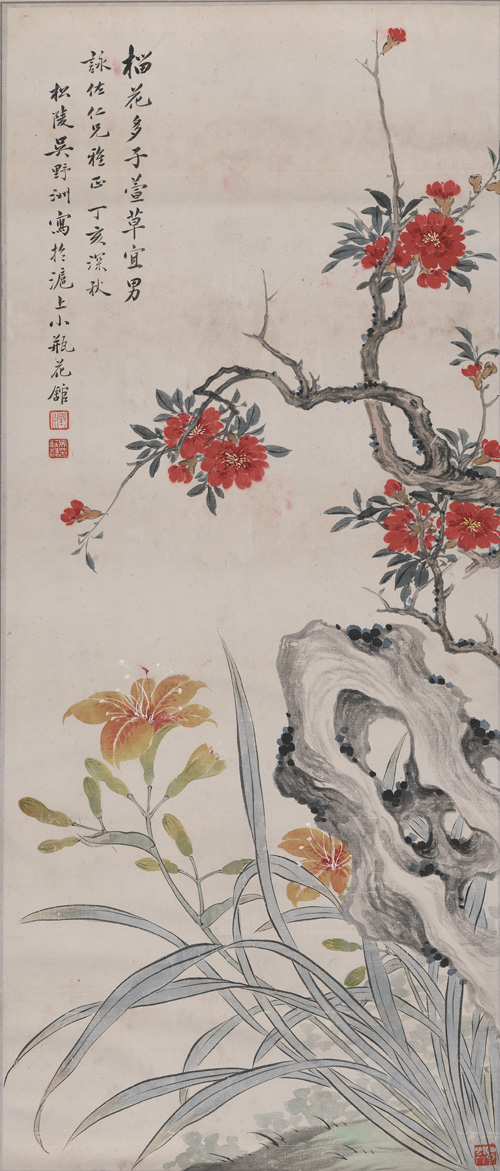 榴花多子萱草宜男
詠佐仁兄雅正 丁亥深秋
松陵吳野洲寫於滬上小瓶花館